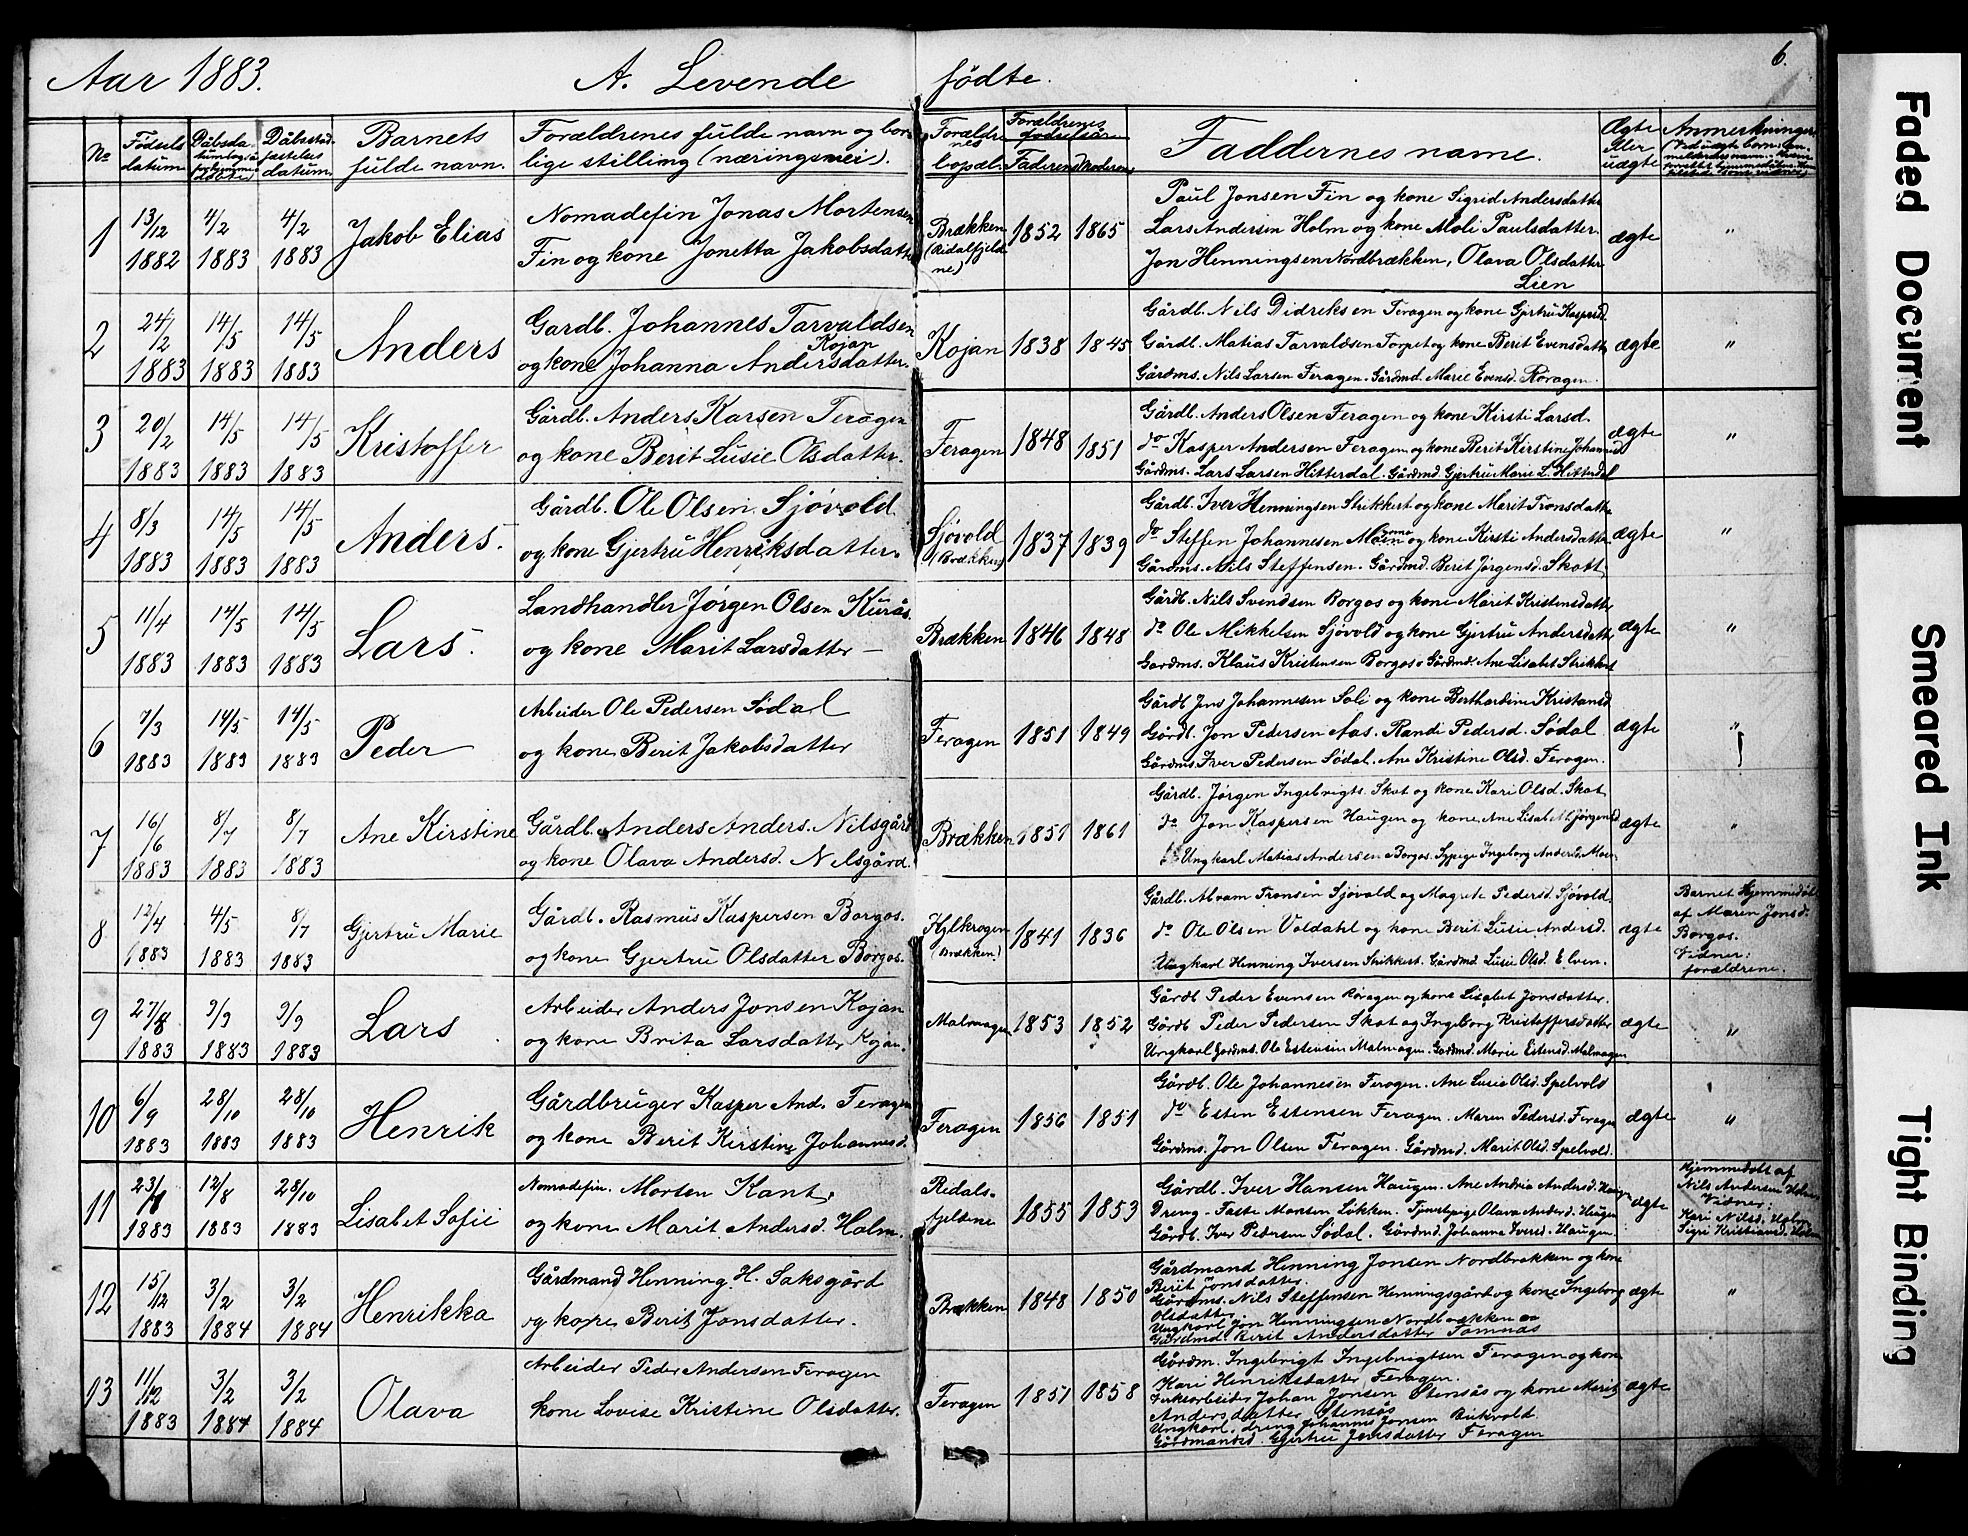 Aar 1883. A. Levende fødte. 6.
No Fødsels datum. Dåbsda Dåbssted Barnets fulde navn. Forældrenes fulde navn og bor lige stilling (næringsvei). Foræld nes bopæl. Forældrenes fødselsår Faderens Moderens Faddernes name. Ægte eller uægte Anmerkninger
1 13/12 1882 4/2 1883 4/2 1883 Jakob Elias
Nomadefin Jonas Mortensen
Fin og kone Jonetta Jakobsdatter
Brækken (Ridalfjeld ne) 1852 1865
Paul Jonsen Fin og kone Sigrid Andersdatter
Lars Andersen Holm og kone Moli Paulsdatter.
Jon Henningsen Nordbrækken, Olava Olsdatter
Lien
ægte "
2 24/2 1883 14/5 1883 14/5 1883 Anders
Gardb. Johannes Tarvaldsen
Kojan
og kone Johanna Andersdatter.
Kojan 1838 1845
Gårdb. Nils Didreksen Feragen og kone Gjertru Kaspersd.
Gårdb. Matias Tarvaldsen Torpet og kone Berit Evensdatter
Gårdms. Nils Larsen Feragen. Gårdmd. Marie Evensd. Røragen.
ægte "
3 20/2 1883 14/5 1883 14/5 1883 Kristoffer
Gårdb. Anders Karsen Feragen
og kone Berit Lusie Olsdatter.
Feragen 1848 1851
Gårdb. Anders Olsen Feragen og kone Kirsti Larsd.
do Kasper Andersen Feragen og kone Berit Kirstine Johannesd
Gårdms. Lars Larsen Hitterdal. Gårdmd Gjertru Marie L. Hitterdal
ægte "
4 8/3 1883 14/5 1883 14/5 1883 Anders.
Gårdb. Ole Olsen Sjøvold
og kone Gjertru Henriksdatter.
Sjøvold (Brækken) 1837 1839
Gårdb. Iver Henningsen Strikkert og kone Marit Tronsdatter
do Steffen Johannesen og kone Kirsti Andersdatter
Gårdms. Nils Steffensen. Gårdmd. Berit Jørgensd. Skott
ægte "
5 11/4 1883 14/5 1883 14/5 1883 Lars.
Landhandler Jørgen Olsen Kurås
og kone Marit Larsdatter —
Brækken 1846 1848
Gårdb. Nils Svendsen Borgos og kone Marit Kristensdatter
do Ole Mikkelsen Sjøvold og kone Gjertru Andersdatter
Gardms. Klaus Kristensen Borgos. Gårdmd. Ane Lisabet Strikkert
ægte "
6 7/3 1883 14/5 1883 14/5 1883 Peder
Arbeider Ole Pedersen Sødal
og kone Berit Jakobsdatter
Feragen 1851 1849
Gårdb Jens Johannesen Soli og kone Berthardine Kristansd
Gårdb. Jon Pedersen Aas. Randi Pedersd. Sødal
Gårdms. Iver Pedersen Sødal. Ane Kristine Olsd. Feragen.
ægte "
7 16/6 1883 8/7 1883 8/7 1883 Ane Kirstine
Gårdb. Anders Anders. Nilsgård
og kone Olava Andersd. Nilsgård.
Brækken 1851 1861
Gårdb. Jørgen Ingebrigts. Skot og kone Kari Olsd. Skot
do Jon Kaspersen Haugen og kone Ane Lisabet Jørgensd
Ungkarl Matias Andersen Borgos. Sypige Ingeborg Andersd. Moen
ægte "
8 12/4 1883 4/5 1883 8/7 1883 Gjertru Marie
Gårdb. Rasmus Kaspersen Borgos.
og kone Gjertru Olsdatter Borgos.
Hylkrogen (Brækken) 1841 1836
Gårdb. Abram Tronsen Sjøvold og Magrete Pedersd. Sjøvold
do Ole Olsen Voldahl og kone Berit Lusie Andersd.
Ungkarl Henning Iversen Strikkert. Gårdmd Lusie Olsd. Elven.
ægte
Barnet Hjemmedøbt
af Maren Jonsd.
Borgos.
Vidner:
forældrene.
9 27/8 1883 9/9 1883 9/9 1883 Lars
Arbeider Anders Jonsen Kojan
og kone Brita Larsdatter Kojan.
Malmagen 1853 1852
Gårdb Peder Evensen Røragen og kone Lisabet Jonsdatter.
Gårdb Peder Pedersen Skot og Ingeborg Kristoffersdatter
Ungkarl Gardms. Ole Estensen Malmagen. Gardmd. Marie Estensd. Malmagen
ægte "
10 6/9 1883 28/10 1883 28/10 1883 Henrik
Gårdbruger Kasper And. Feragen
og kone Berit Kirstine Johannesd.
Feragen 1856 1851
Gårdb. Ole Johannesen Feragen. Ane Lusie Olsd. Spelvold
do Esten Estensen Feragen. Maren Pedersd. Feragen
Gårdms. Jon Olsen Feragen. Gårdmd. Marit Olsd. Spelvold.
ægte "
11 23/7 1883 12/8 1883 28/10 1883 Lisabet Sofie
Nomadefin. Morten Kant
og kone Marit Andersd. Holm.
Ridals- fjeldene 1855 1853
Gårdb. Iver Hansen Haugen. Ane Andria Andersd. Haugen
Dreng. Taste Monsen Løkken. Tjenestpige Olava Andersd. Haugen
Gårdb. Iver Pedersen Sødal. Gårdmd Johanna Iversd. Haugen.
ægte
Hjemmedøbt af
Nils Andersen Holm
Vidner:
Kari Nilsd. Holm
Sigri Kristiansd. Holm
12 15/12 1883 3/2 1884 3/2 1884 Henrikka
Gårdmand Henning H. Saksgård
og kone Berit Jonsdatter.
Brækken 1848 1850
Gårdmand Henning Jonsen Nordbrækken og kone
Berit Jonsdatter.
Gårdms. Nils Steffensen Henningsgård og kone Ingeborg
Olsdatter
Ungkarl Jon Henningsen Nordbrækken
Gårdmd Berit Andersdatter Tamnæs
ægte "
13 11/12 1883 3/2 1884 3/2 1884 Olava
Arbeider Peder Andersen Feragen
kone Lovise Kristine Olsdatter.
Feragen 1851 1858
Gårdm. Ingebrigt Ingebrigtsen Feragen og kone
Kari Henriksdatter Feragen.
Johan Jonsen Stensås og kone Marit
Andersdatter Stensås
Ungkarl, dreng Johannes Jonsen Bukvold
Gårdmandsd. Gjertru Jonsdatter Feragen
ægte
Faded Document
Smeared Ink
Tight Binding